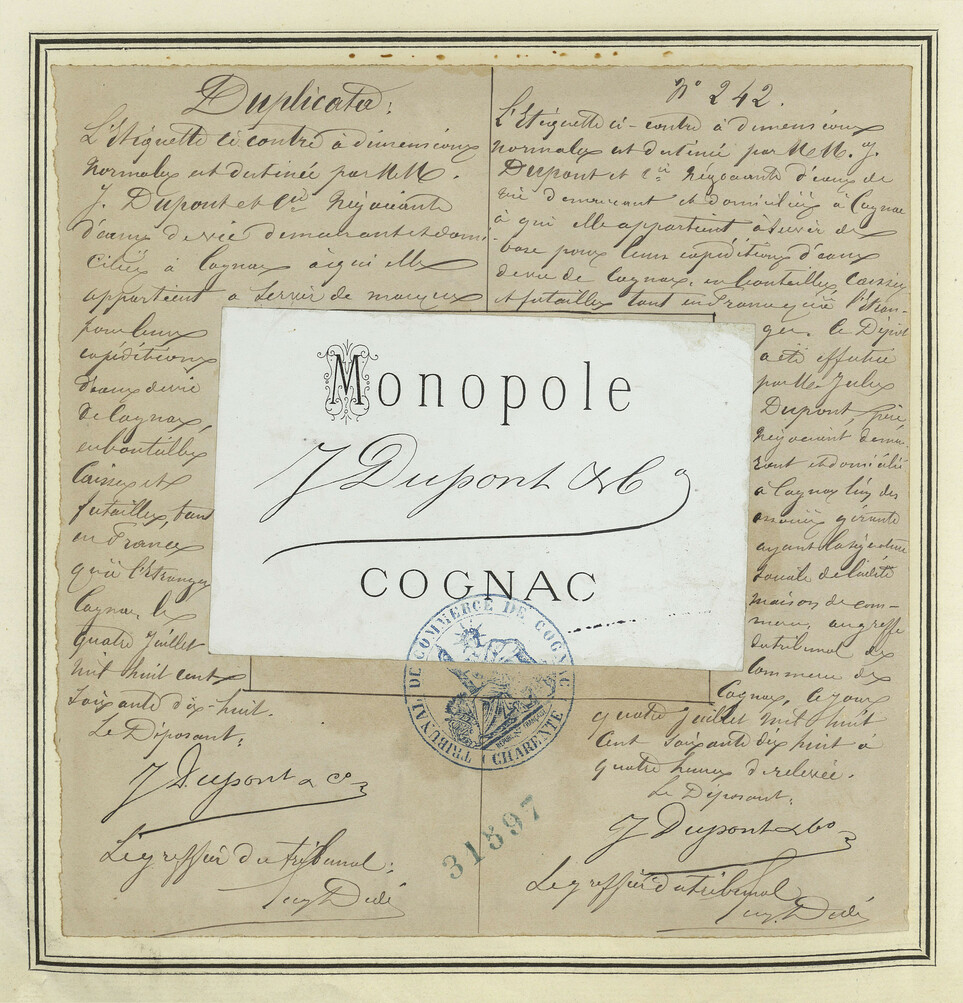 Duplicata:
L'Etiquette ci contre à dimensions
normales est destinée par MM.
J. Dupont et Cie Négociants
d'eaux de vie demeurant et domi-
ciliés à Cognac à qui elle
appartient a servir de marque
pour leurs
expéditions
d'eaux de vie
de Cognac,
en bouteilles
Caisses et
futailles, tant
en France
qu'à l'Etranger
Cognac, le
quatre Juillet
mil huit cent
soixante dix-huit.
Le Déposant:
J Dupont & Co
Le greffier du tribunal:
N° 242.
L'Etiquette ci-contre à dimensions
normales est destinée par MM. J.
Dupont et Cie Négociants d'eaux de
vie demeurant et domiciliés à Cognac
à qui elle appartient à servir de
base pour leurs expéditions d'eaux
de vie de Cognac, en bouteilles, caisses
et futailles tant en France qu'à l'étran-
ger. Le Dépôt
a été effectué
par M. Jules
Dupont, père
Négociant demeu-
rant et domicilié
à Cognac l'un des
gérants
ayant la signature
sociale de ladite
maison de com-
merce, au greffe
du tribunal de
Commerce de
Cognac, le jour
quatre Juillet mil huit
cent soixante dix huit à
quatre heures de relevée.
Le Déposant:
J Dupont & Co
Le greffier du tribunal
Monopole
J Dupont & Co
COGNAC
TRIBUNAL DE COMMERCE DE COGNAC
CHARENTE
31897